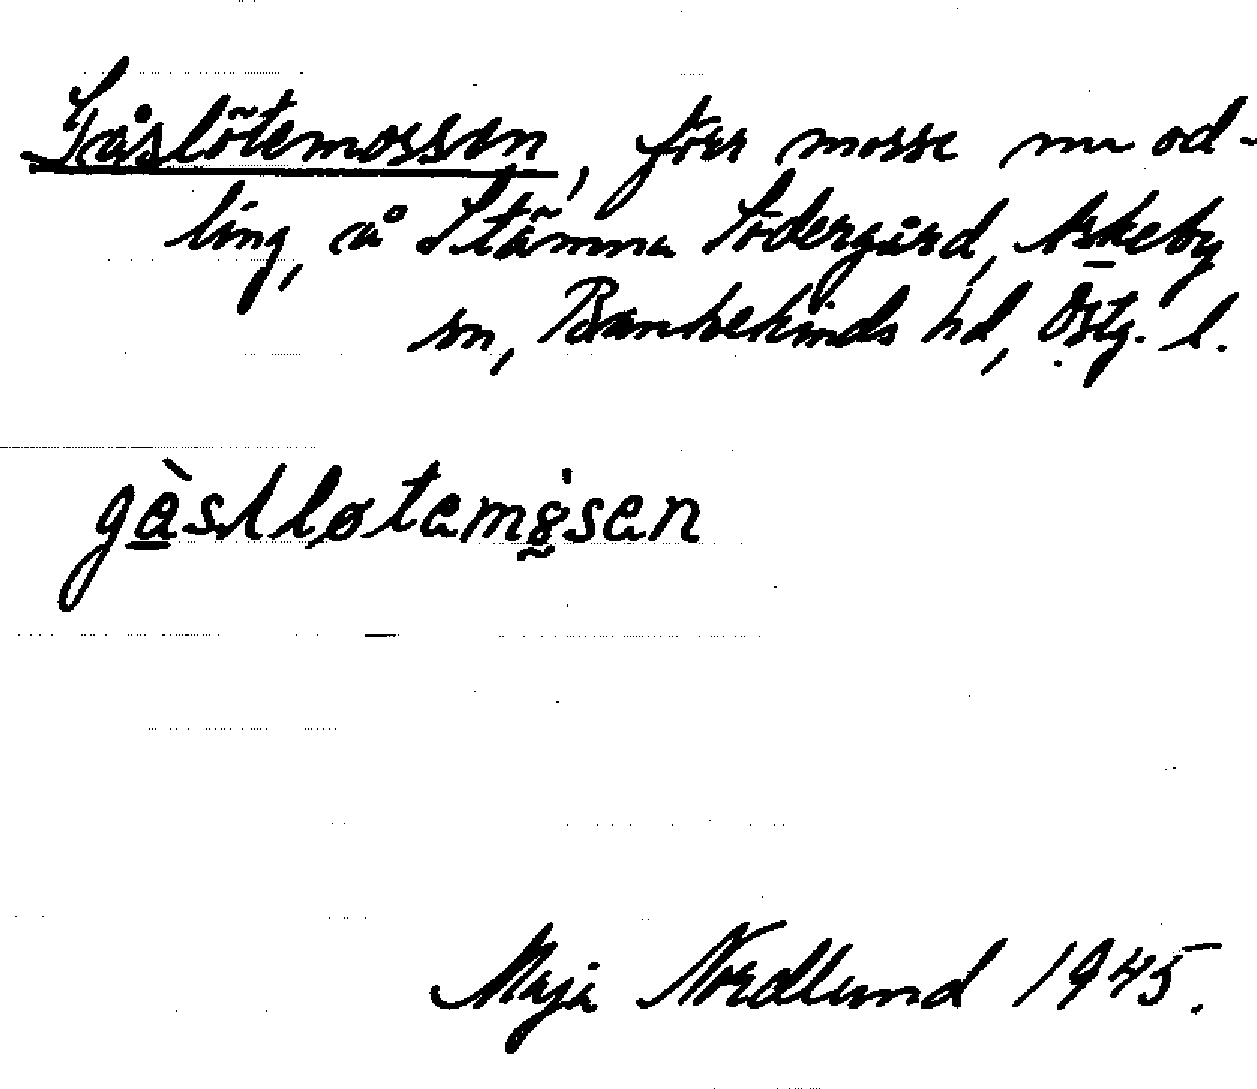 Gåslötemossen, förr mosse nu od-
ling, å Stämma Södergård, Askeby
sn, Bankekinds hd, Östg. l.
gàslløtemɷ̀sen
Maja Nordlund 1945.